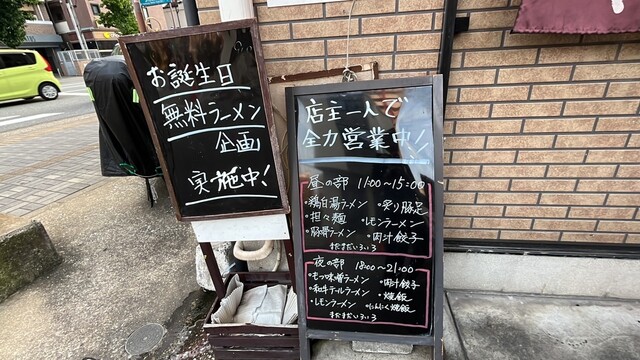 お誕生日
無料ラーメン
企画
実施中!
店主一人で
全力営業中!
昼の部 11:00~15:00
・鶏白湯ラーメン ・炙り豚足
・担々麺 ・レモンラーメン
・豚骨ラーメン ・肉汁餃子
まだまだいろいろ
夜の部 18:00~21:00
・もつ味噌ラーメン ・肉汁餃子
・和牛テールラーメン ・焼飯
・レモンラーメン ・にんにく焼飯
まだまだいろいろ